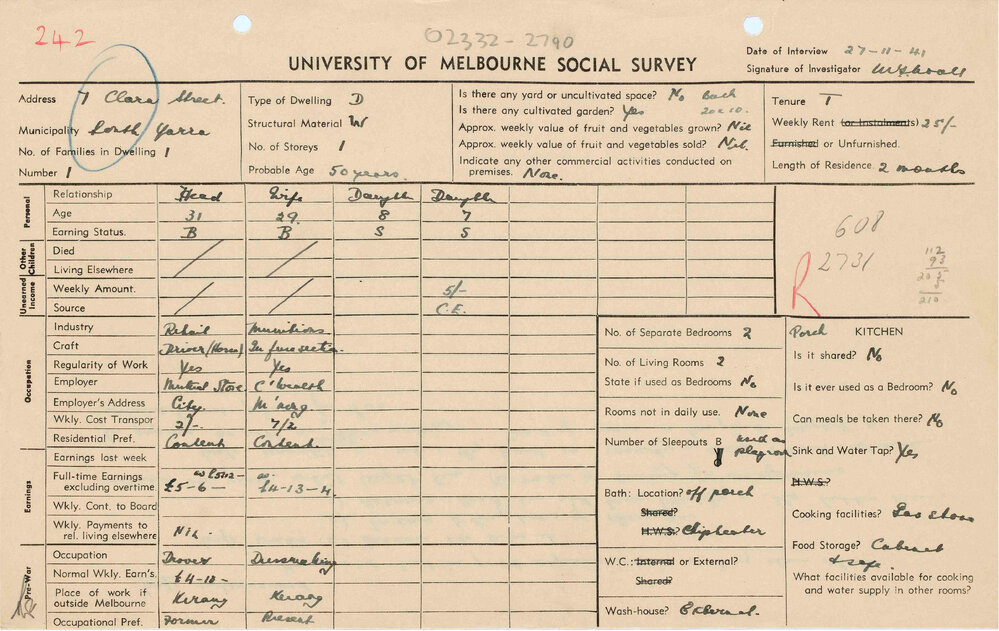 242
02332-2790
UNIVERSITY OF MELBOURNE SOCIAL SURVEY
Date of Interview 27-11-41
Signature of Investigator
Address 7 Clara Street.
Municipality South Yarra
No. of Families in Dwelling 1
Number 1
Type of Dwelling D
Structural Material W
No. of Storeys 1
Probable Age 50 years.
Is there any yard or uncultivated space? No Back
Is there any cultivated garden? Yes 20 x 10.
Approx. weekly value of fruit and vegetables grown? Nil
Approx. weekly value of fruit and vegetables sold? Nil.
Indicate any other commercial activities conducted on
premises. None.
Tenure T
Weekly Rent (or Instalments) 25/-
Furnished or Unfurnished.
Length of Residence. 2 months
Personal
Relationship Head Wife Daughter Daughter
Age 31 29. 8 7
Earning Status. B B S S
Other Children
Died
Living Elsewhere
Unearned Income
Weekly Amount. 5/-
Source C.E.
608
R 2731
112
93
205
5
210
Occupation
Industry Retail Munitions
Craft Driver (Horse) In fuse section.
Regularity of Work Yes Yes
Employer Mutual Store C'wealth
Employer's Address City. M'nong
Wkly. Cost Transpor 2/- 7/2
Residential Pref. Content Content
Earnings
Earnings last week
Full-time Earnings
excluding overtime £5-6- £4-13-4
Wkly. Cont. to Board
Wkly. Payments to
rel. living elsewhere Nil
Pre-War
Occupation Drover Dressmaking
Normal Wkly. Earn's. £4-10-
Place of work if
outside Melbourne Kerang Kerang
Occupational Pref. Former Present
No. of Separate Bedrooms 2
No. of Living Rooms 2
State if used as Bedrooms No
Rooms not in daily use. None
Number of Sleepouts B used as
playroom
Bath: Location? off porch
Shared?
H.W.S.? Chipheater
W.C.: Internal or External?
Shared?
Wash-house? External.
Porch KITCHEN
Is it shared? No
Is it ever used as a Bedroom? No
Can meals be taken there? No
Sink and Water Tap? Yes
H.W.S.?
Cooking facilities? Gas stove
Food Storage? Cabinet
& safe.
What facilities available for cooking
and water supply in other rooms?